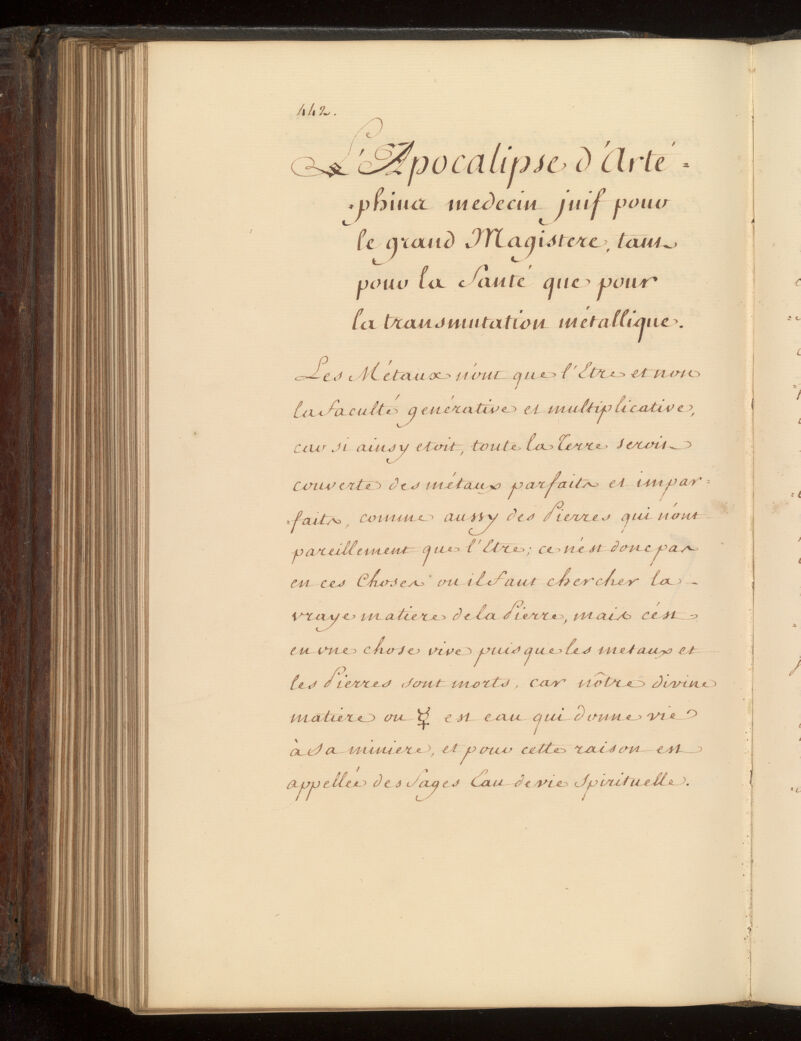 442.
L'Apocalipse d'Arté=
=phius medecin juif pour
le grand Magistere, tant
pour la Santé que pour
la transmutation métallique.
Les Métaux n'ont que l'Etre et non
la faculté genérative et multiplicative,
car si ainsy etoit, toute la Terre seroit
couverte des métaux parfaits et impar=
=faits, comme aussy des Pierres qui n'ont
pareillement que l'Etre; ce n'est donc pas
en ces Choses où il faut chercher la
vraye matiere de la Pierre, mais c'ést
en vne chose vive puisque les metaux et
les Pierres sont morts, car nôtre divine
matiere ou ☿ est eau qui donne vie
à sa miniere, et pour cette raison est
appellée des Sages Eau de vie Spirituelle.